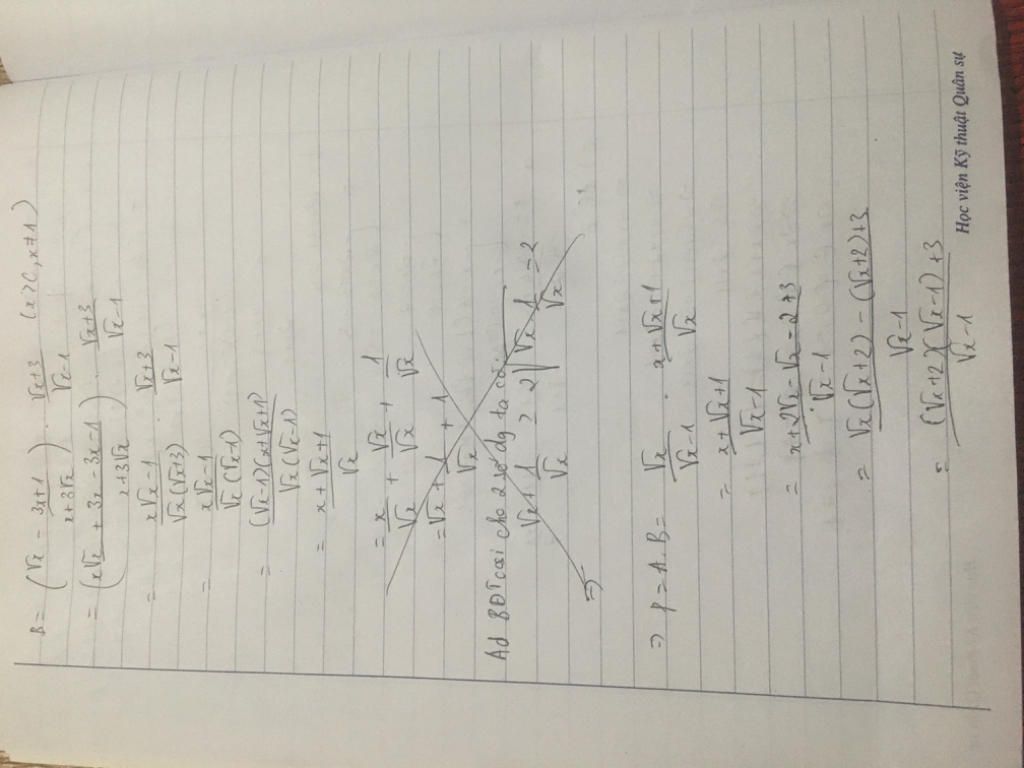 B = (√x - (3x+1)/(x+3√x)) . (√x+3)/(√x-1) (x>0, x≠1)
= ((x√x + 3x - 3x - 1)/(x+3√x)) . (√x+3)/(√x-1)
= (x√x-1)/(√x(√x+3)) . (√x+3)/(√x-1)
= (x√x-1)/(√x(√x-1))
= ((√x-1)(x+√x+1))/(√x(√x-1))
= (x+√x+1)/√x
= x/√x + √x/√x + 1/√x
= √x + 1 + 1/√x
Ad BĐT cosi cho 2 số dg ta có:
√x + 1/√x ≥ 2√(√x . 1/√x) = 2
⇒
⇒ P = A.B = √x/(√x-1) . (x+√x+1)/√x
= (x+√x+1)/(√x-1)
= (x+2√x-√x-2+3)/(√x-1)
= (√x(√x+2) - (√x+2)+3)/(√x-1)
= ((√x+2)(√x-1)+3)/(√x-1)
Học viện Kỹ thuật Quân sự